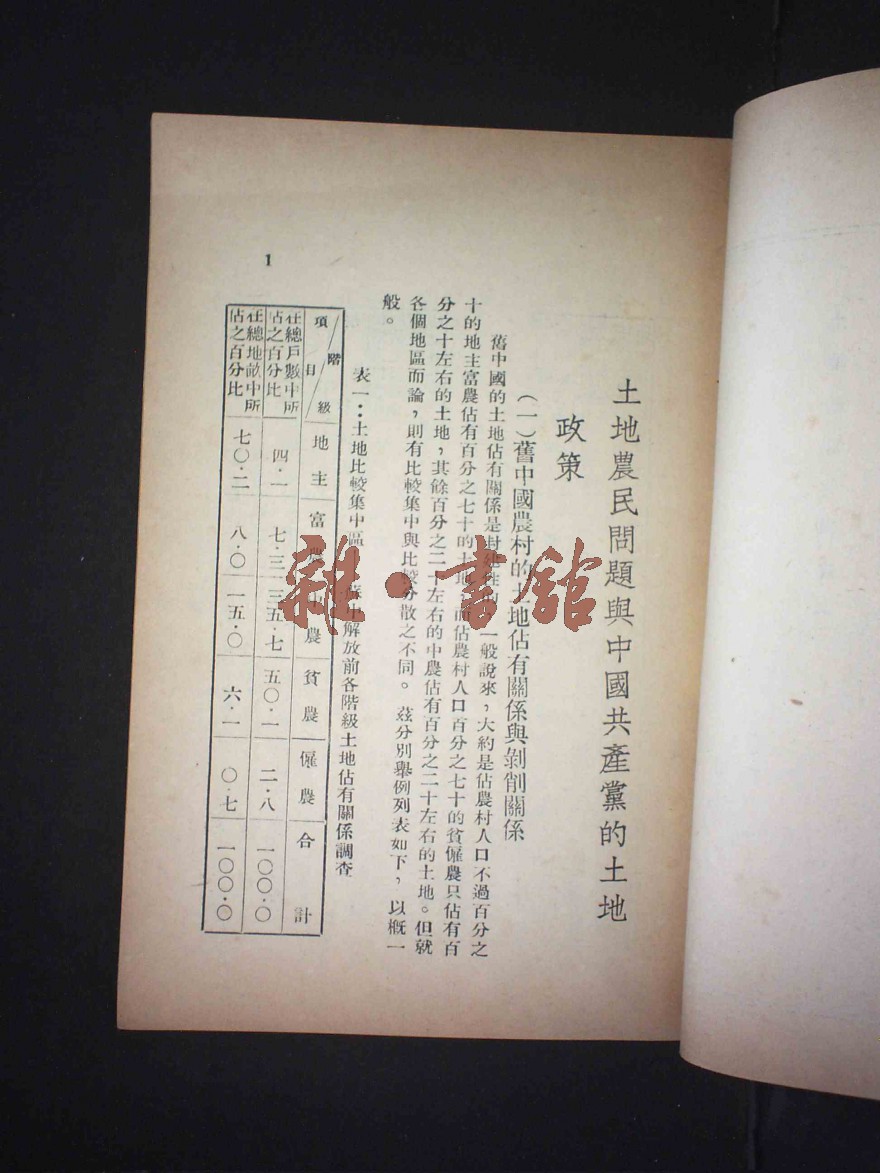 土地農民問題與中國共產黨的土地
政策
（一）舊中國農村的土地佔有關係與剝削關係
舊中國的土地佔有關係是封建性的 一般說來，大約是佔農村人口不過百分之
十的地主富農佔有百分之七十的土地 而佔農村人口百分之七十的貧僱農只佔有百
分之十左右的土地，其餘百分之二十左右的中農佔有百分之二十左右的土地。但就
各個地區而論，則有比較集中與比較分散之不同。茲分別舉例列表如下，以概一
般。
表一：土地比較集中區 中解放前各階級土地佔有關係調查
項目 階級 地主 富農 中農 貧農 僱農 合計
在總戶數中所佔之百分比 四·一 七·三 三五·七 五〇·一 二·八 一〇〇·〇
在總地畝中所佔之百分比 七〇·二 八·〇 一五·〇 六·一 〇·七 一〇〇·〇
1
雜·書館